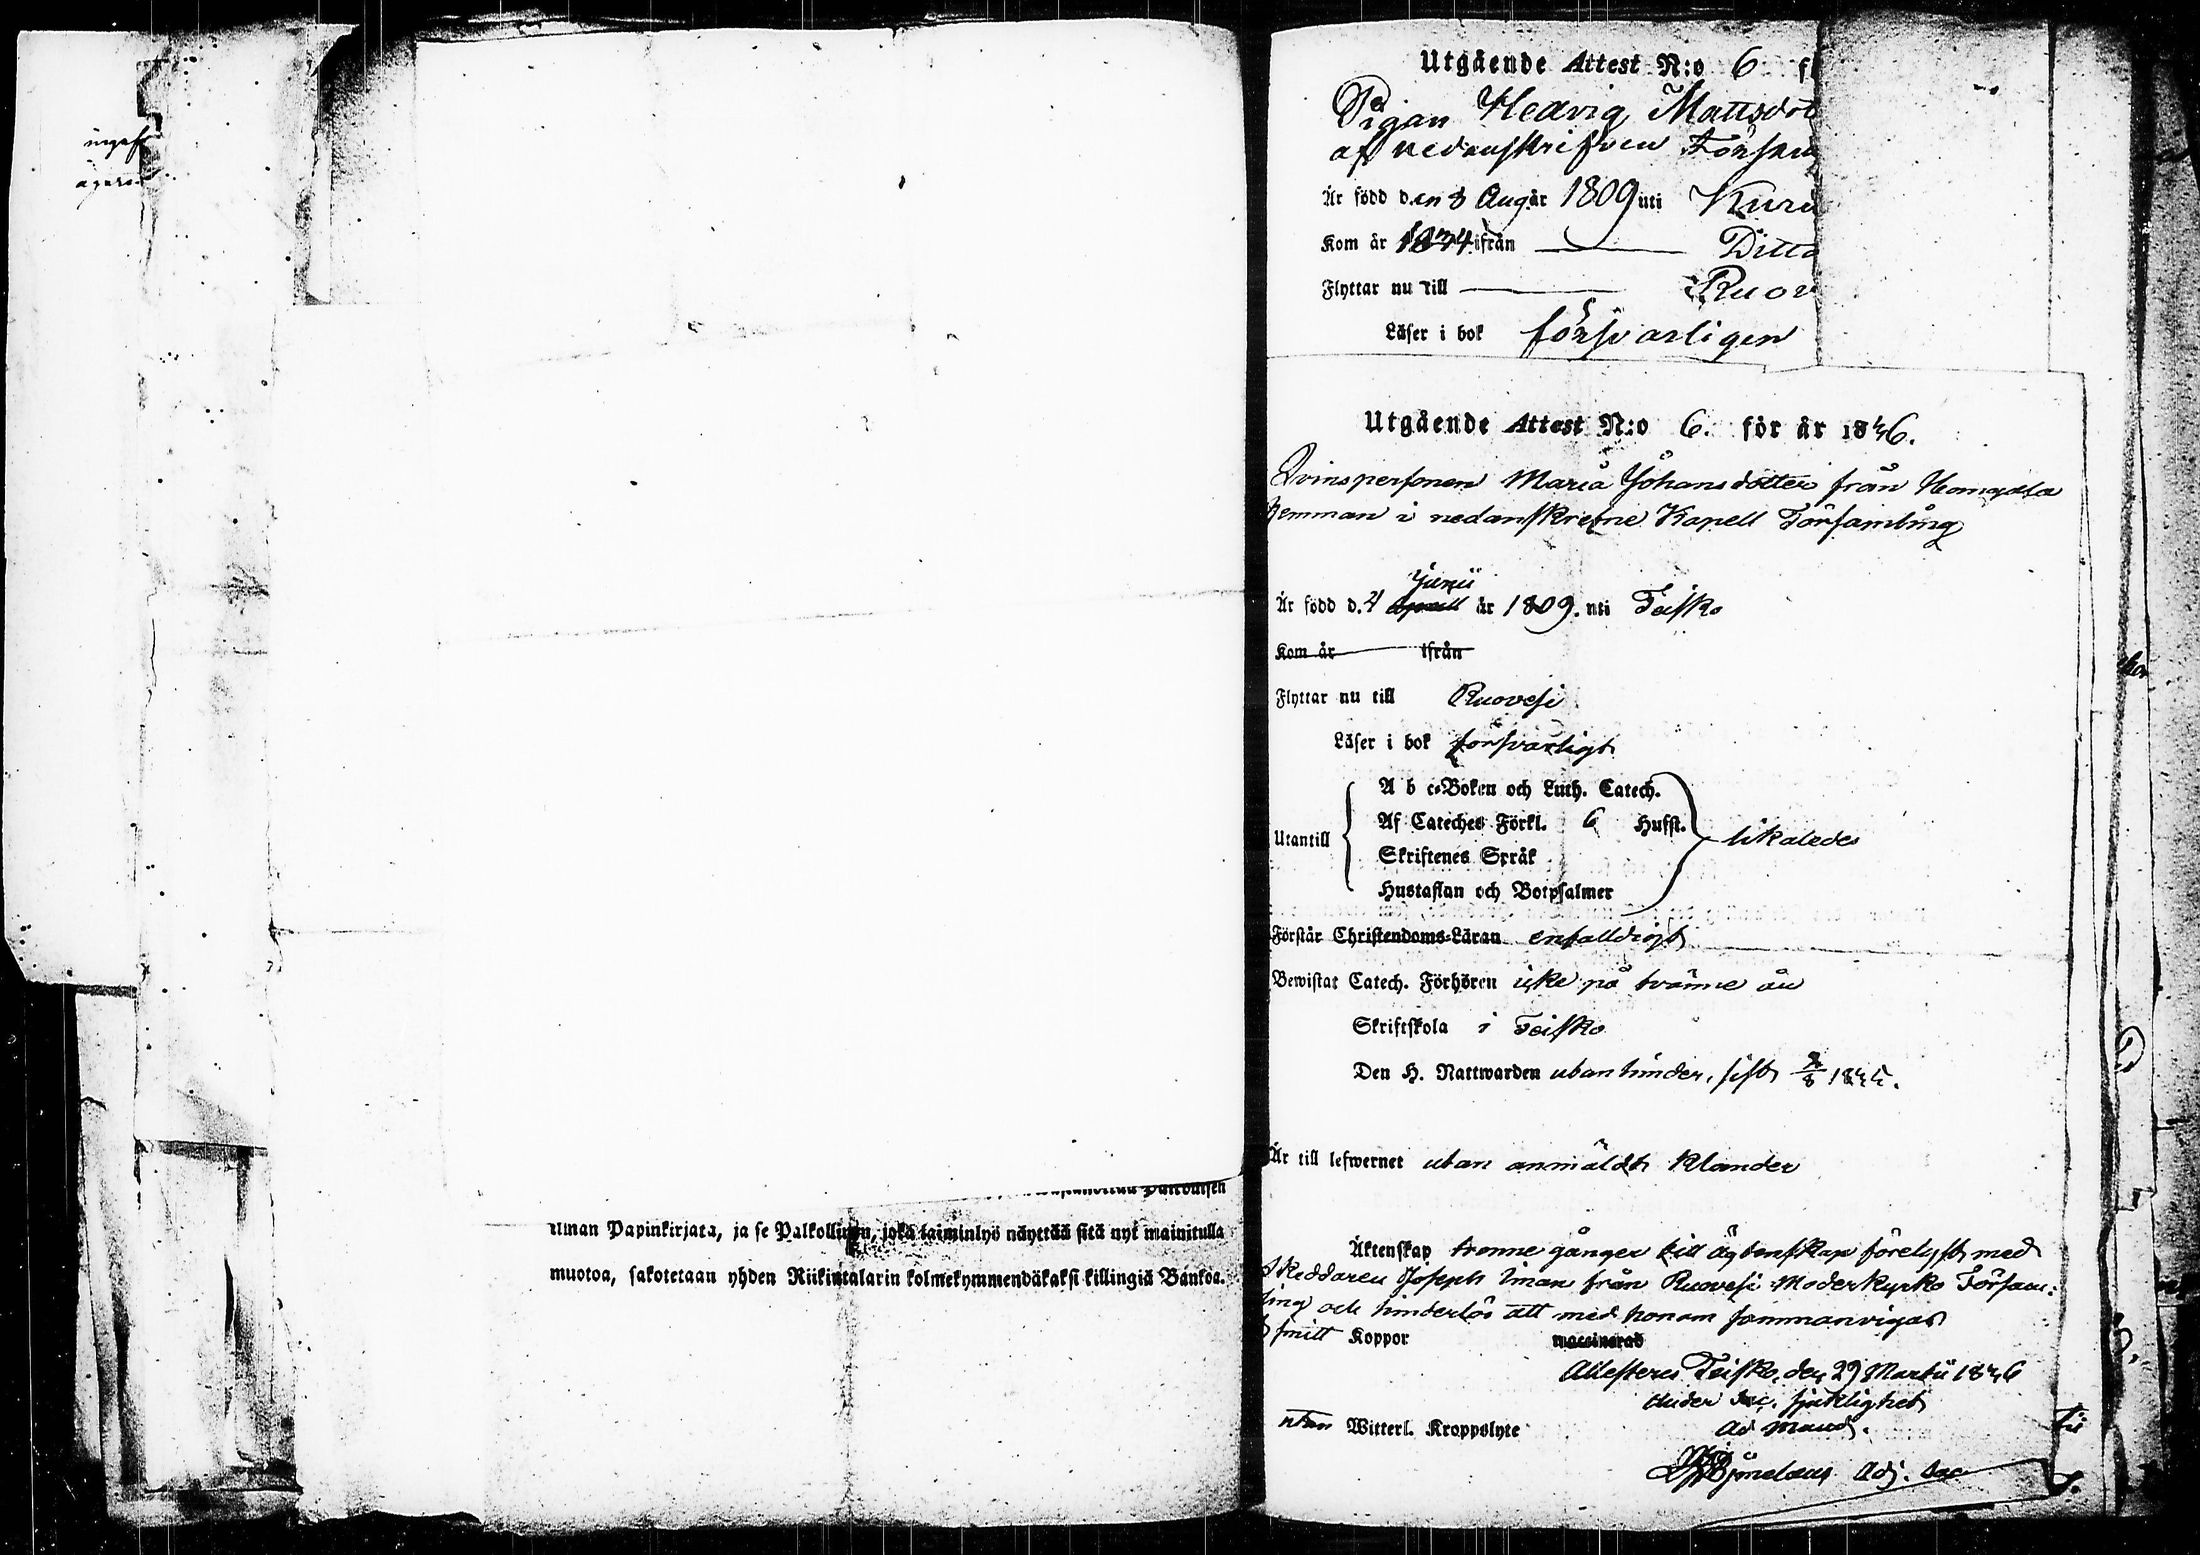 ägaren
ilman Papinkirjata, ja se Palkollinen, joka laiminlyö näyttää sitä nyt mainitulla
muotoa, sakotetaan yhden Riikintalarin kolmekymmendäkaksi killingiä Bankoa.
Utgående Attest N:o 6 f
Pigan Hedvig Mattsdot
af nedanskrifven Försam
Är född den 8 Aug år 1809 uti Kuru
Kom år 1834 ifrån Ditto
Flyttar nu till Ruov
Läser i bok försvarligen
Utgående Attest N:o 6. för år 1846.
Qvinspersonen Maria Johansdotter från
hemman i nedanskrefne Kapell Församling
Junii
Är född d. 4 April år 1809. uti Teisko
Kom år ifrån
Flyttar nu till Ruovesi
Läser i bok försvarligt
A b c-Boken och Luth. Catech.
Af Cateches Förkl. 6 Hufst.
Utantill likaledes
Skriftenes Språk
Hustaflan och Botpsalmer
Förstår Christendoms-Läran enfalldigt
Bewistat Catech. Förhören icke på tvänne år
Skriftskola i Teisko
Den H. Nattwarden utan hinder, sist 1845.
Är till lefwernet utan anmäldt klander
Äktenskap trenne gånger till ägtenskap förelyst med
Skeddaren Joseph Iman från Ruovesi Moderkyrko Försam:
ling och hinderlös att med honom sammanvigas
Koppor vaccinerad
Attesteras Teisko, den 29 Martii 1846
Under
utan Witterl. Kroppslyte ad mand.
Adj. Sac